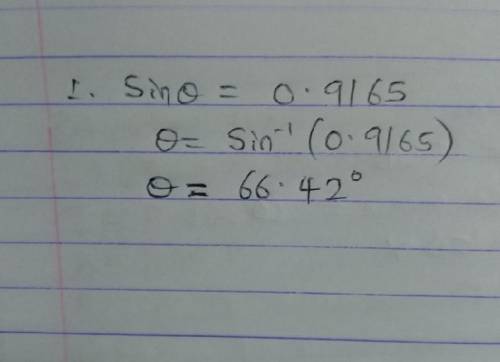 1. Sinθ = 0.9165
θ = Sin⁻¹ (0.9165)
θ = 66.42°